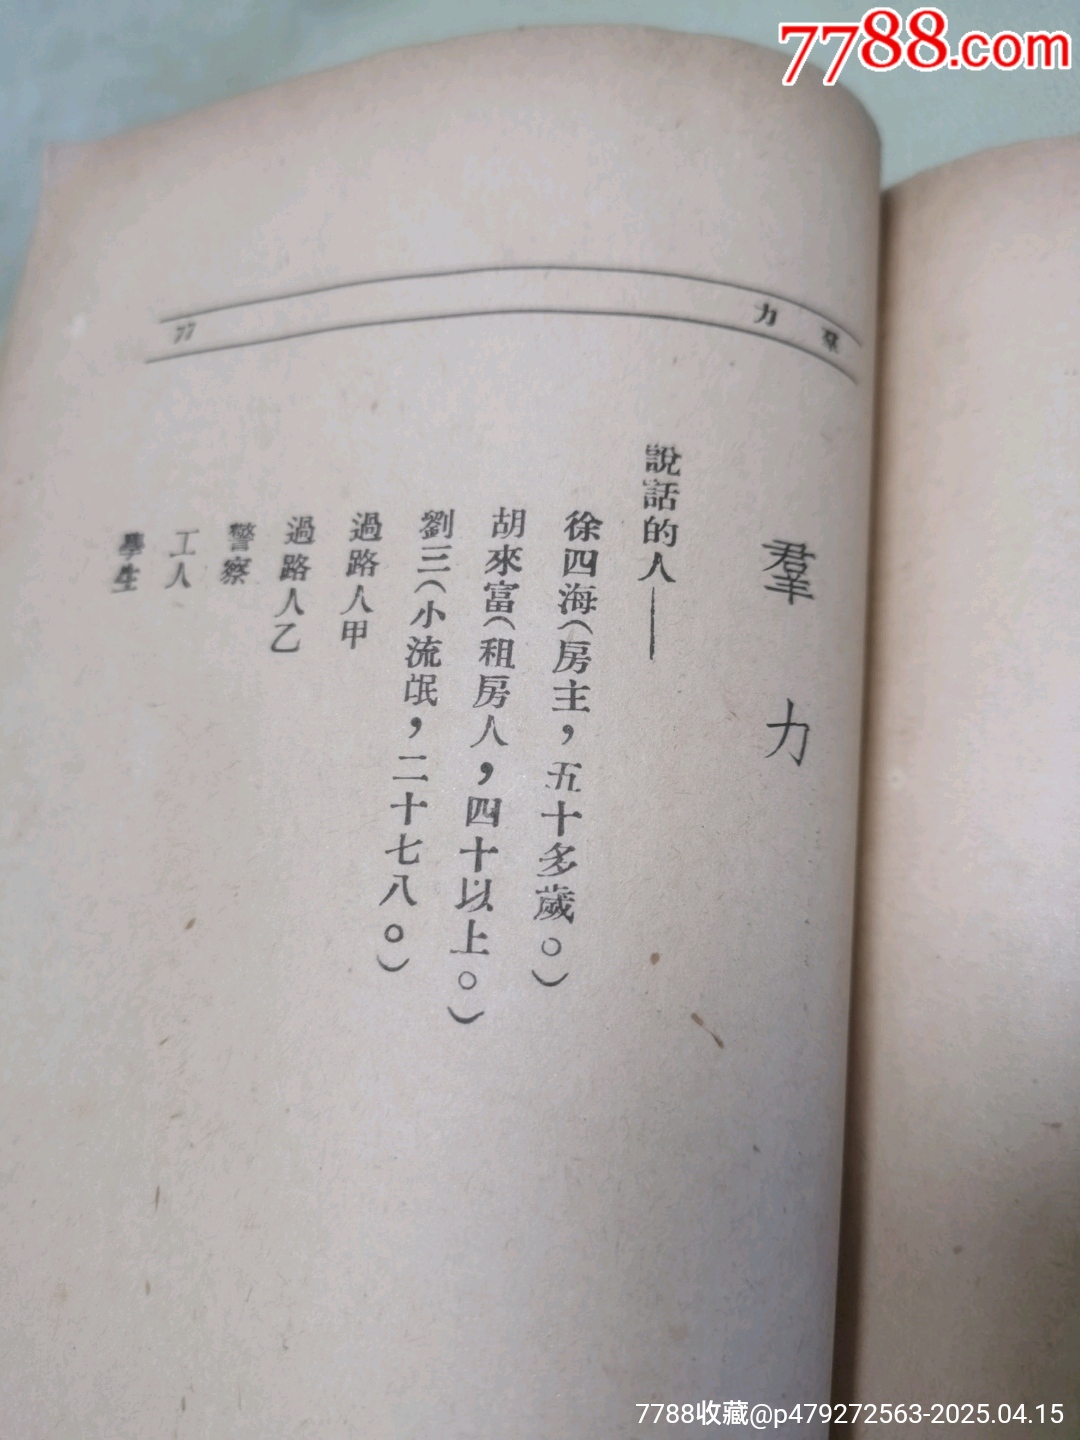 7788.com
羣力
77
羣力
說話的人——
徐四海(房主,五十多歲。)
胡來富(租房人,四十以上。)
劉三(小流氓,二十七八。)
過路人甲
過路人乙
警察
工人
學生
7788收藏@p479272563-2025.04.15